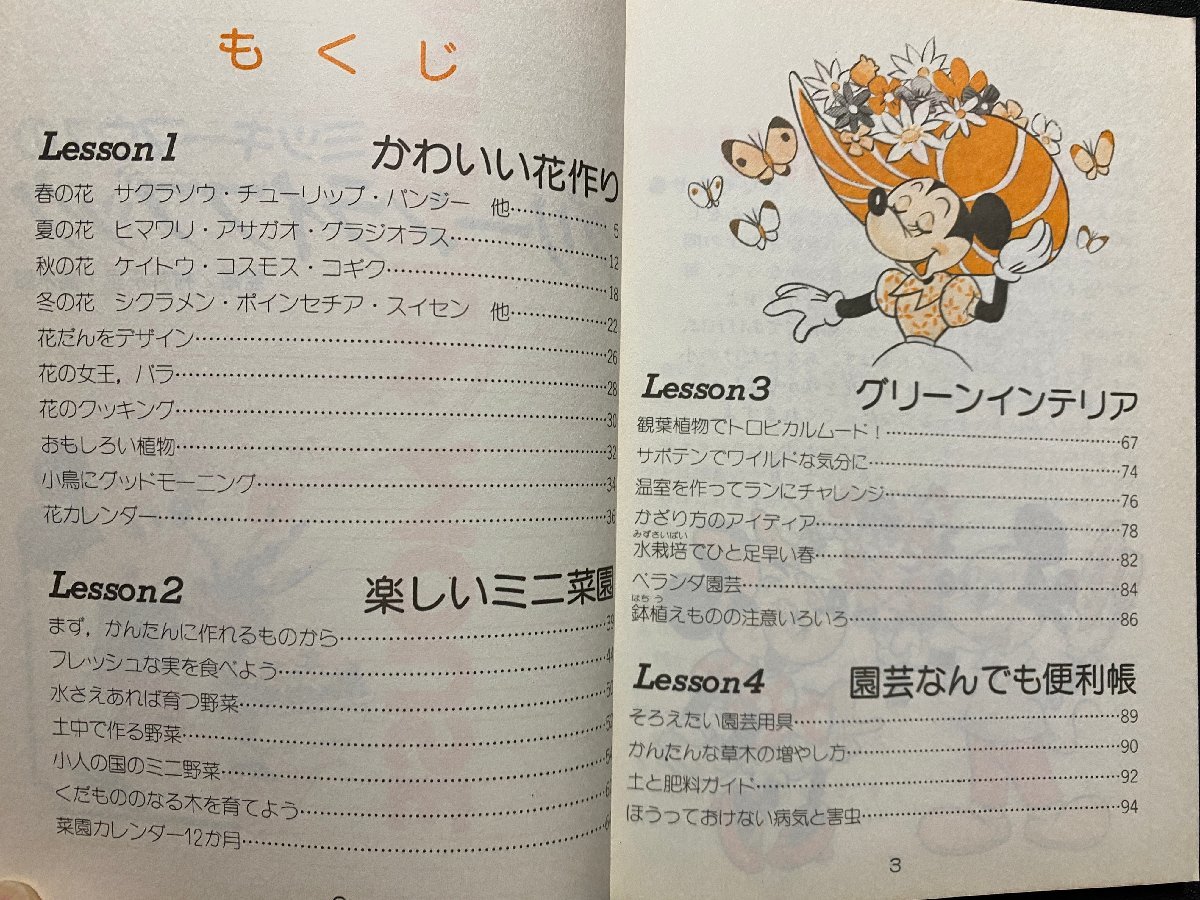 もくじ
Lesson1 かわいい花作り
春の花 サクラソウ・チューリップ・パンジー 他……5
夏の花 ヒマワリ・アサガオ・グラジオラス……12
秋の花 ケイトウ・コスモス・コギク……18
冬の花 シクラメン・ポインセチア・スイセン 他……22
花だんをデザイン……26
花の女王，バラ……28
花のクッキング……30
おもしろい植物……32
小鳥にグッドモーニング……34
花カレンダー……36
Lesson2 楽しいミニ菜園
まず，かんたんに作れるものから……39
フレッシュな実を食べよう……44
水さえあれば育つ野菜……50
土中で作る野菜……52
小人の国のミニ野菜……54
くだもののなる木を育てよう……
菜園カレンダー12か月……
Lesson3 グリーンインテリア
観葉植物でトロピカルムード！……67
サボテンでワイルドな気分に……74
温室を作ってランにチャレンジ……76
かざり方のアイディア……78
みずさいばい
水栽培でひと足早い春……82
ベランダ園芸……84
はちう
鉢植えものの注意いろいろ……86
Lesson4 園芸なんでも便利帳
そろえたい園芸用具……89
かんたんな草木の増やし方……90
土と肥料ガイド……92
ほうっておけない病気と害虫……94
3